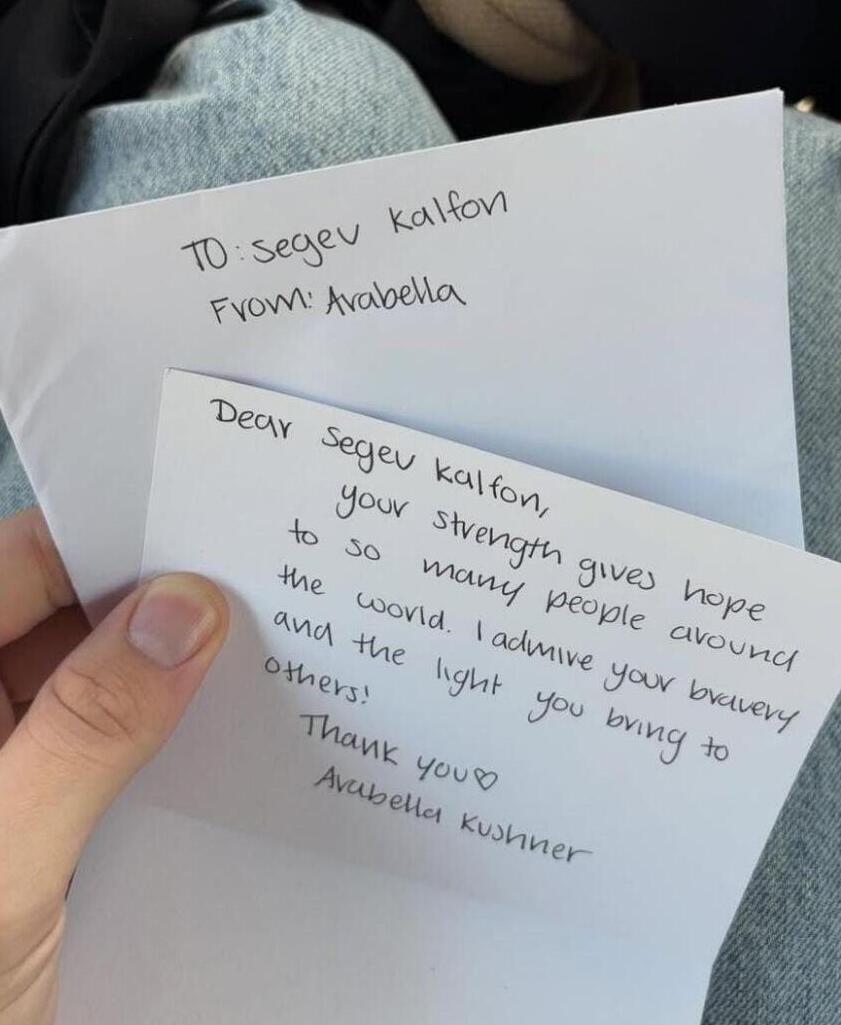 TO: Segev Kalfon
From: Arabella
Dear Segev Kalfon,
your strength gives hope
to so many people around
the world. I admire your bravery
and the light you bring to
others!
Thank you♡
Arabella Kushner